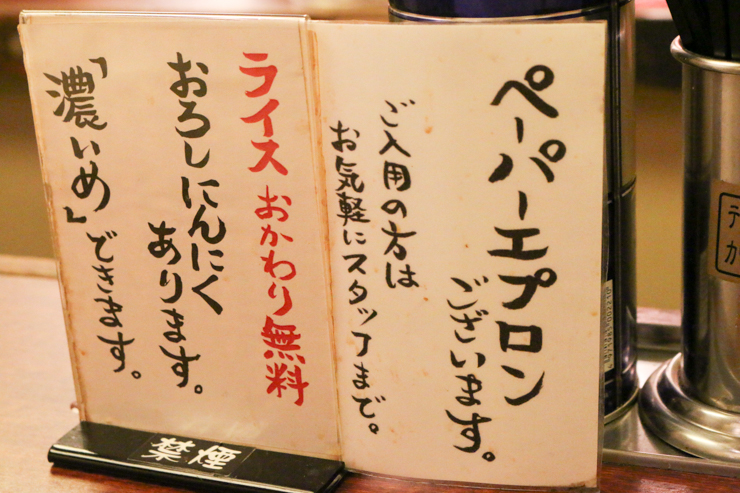 ペーパーエプロン
ございます。
ご入用の方は
お気軽にスタッフまで。
ライス おかわり無料
おろしにんにく
あります。
「濃いめ」できます。
禁煙
テ
カ